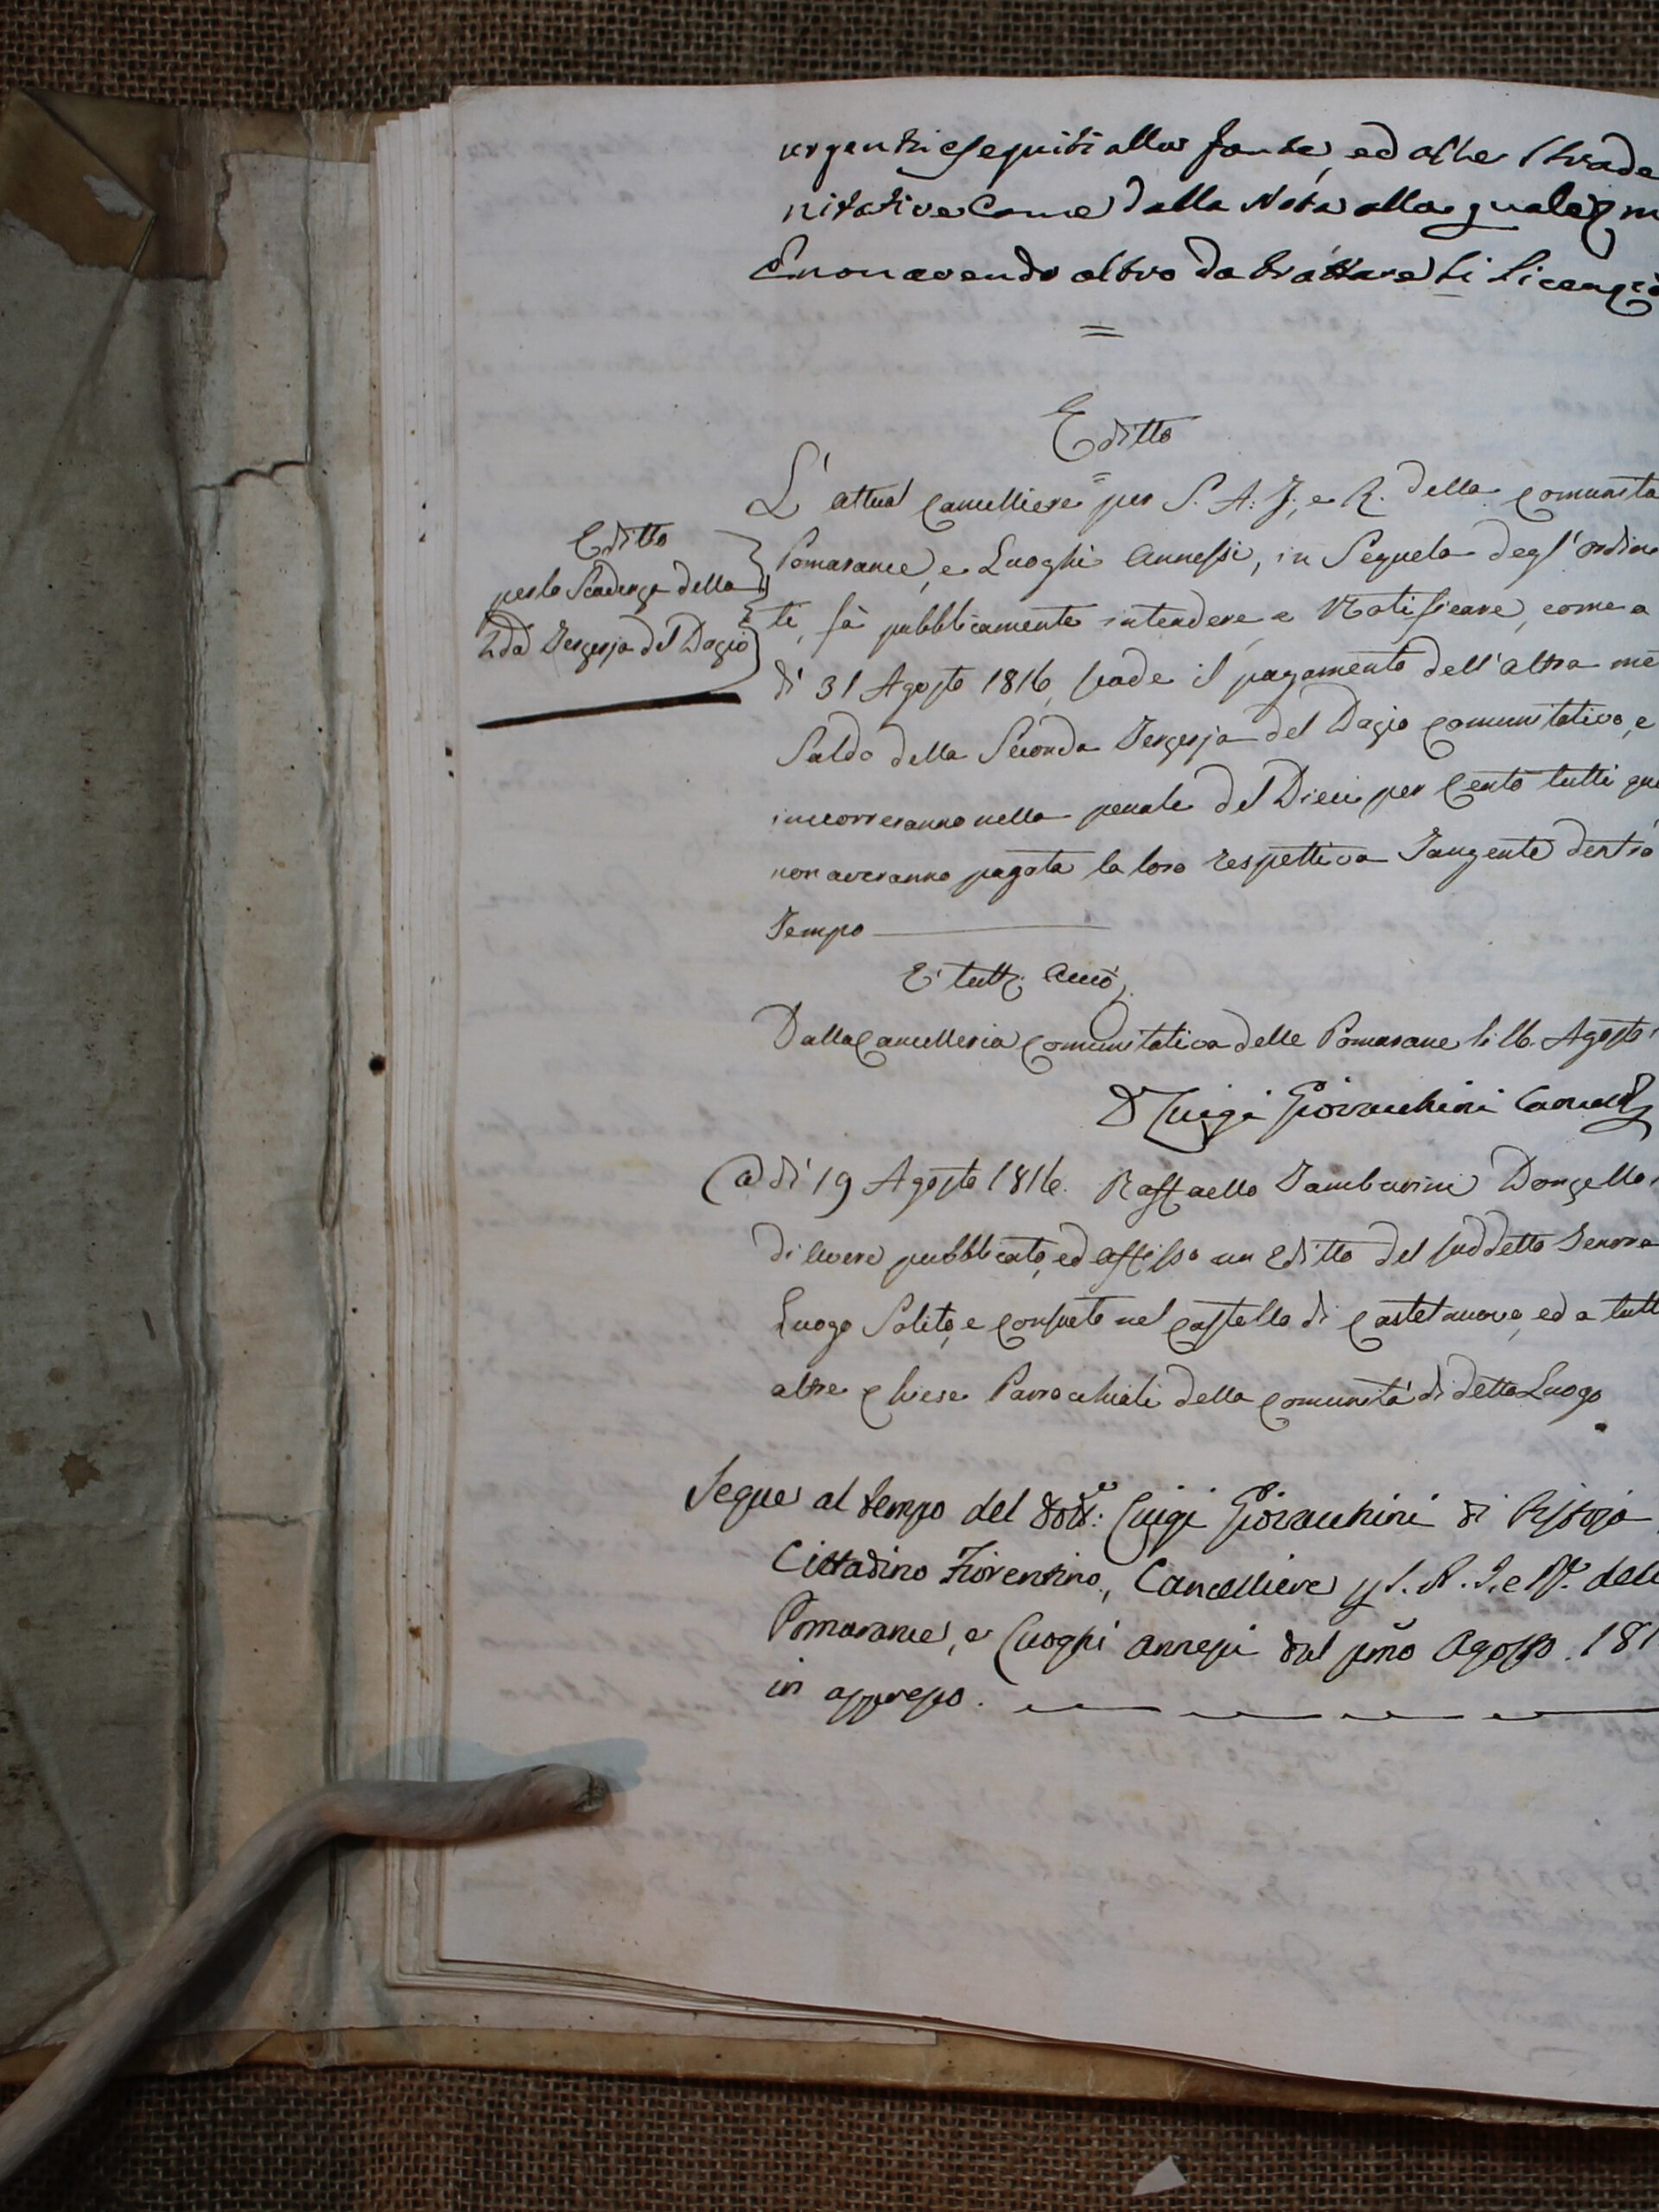 urgenti eseguiti alla fonte, ed alle Strade
nitative Come dalla Nota alla quale
E non avendo altro da trattare li licenziò
=
Editto
L' attual Cancelliere per S. A. I, e R. della Comunita
Editto
per la Scadenza della
2da Terzeria del Dazio
Pomarance, e Luoghi Annessi, in Sequela degl' ordini
ti, fà pubblicamente intendere e Notificare, come a
dì 31 Agosto 1816, scade il pagamento dell' altra me
Saldo della Seconda Terzeria del Dazio Comunitativo, e
incorreranno nella penale del Dieci per Cento tutti que
non averanno pagata la loro respettiva Tangente dentro
Tempo
E' tutt. acciò
Dalla Cancelleria Comunitativa delle Pomarance li 16. Agosto
D Luigi Giovacchini Cancell
a dì 19 Agosto 1816. Raffaello Tamburini Donzello
di avere pubblicato, ed affisso un Editto del suddetto Tenore
Luogo Solito, e Consueto nel Castello di Castelnuovo, ed a tutt
altre Chiese Parrocchiali della Comunità di detto Luogo
Segue al tempo del Dott: Luigi Giovacchini di Pistoja
Cittadino Fiorentino, Cancelliere p S. A. I. e R. dell
Pomarance, e Luoghi annessi dal pmo Agosto. 181
in appresso.